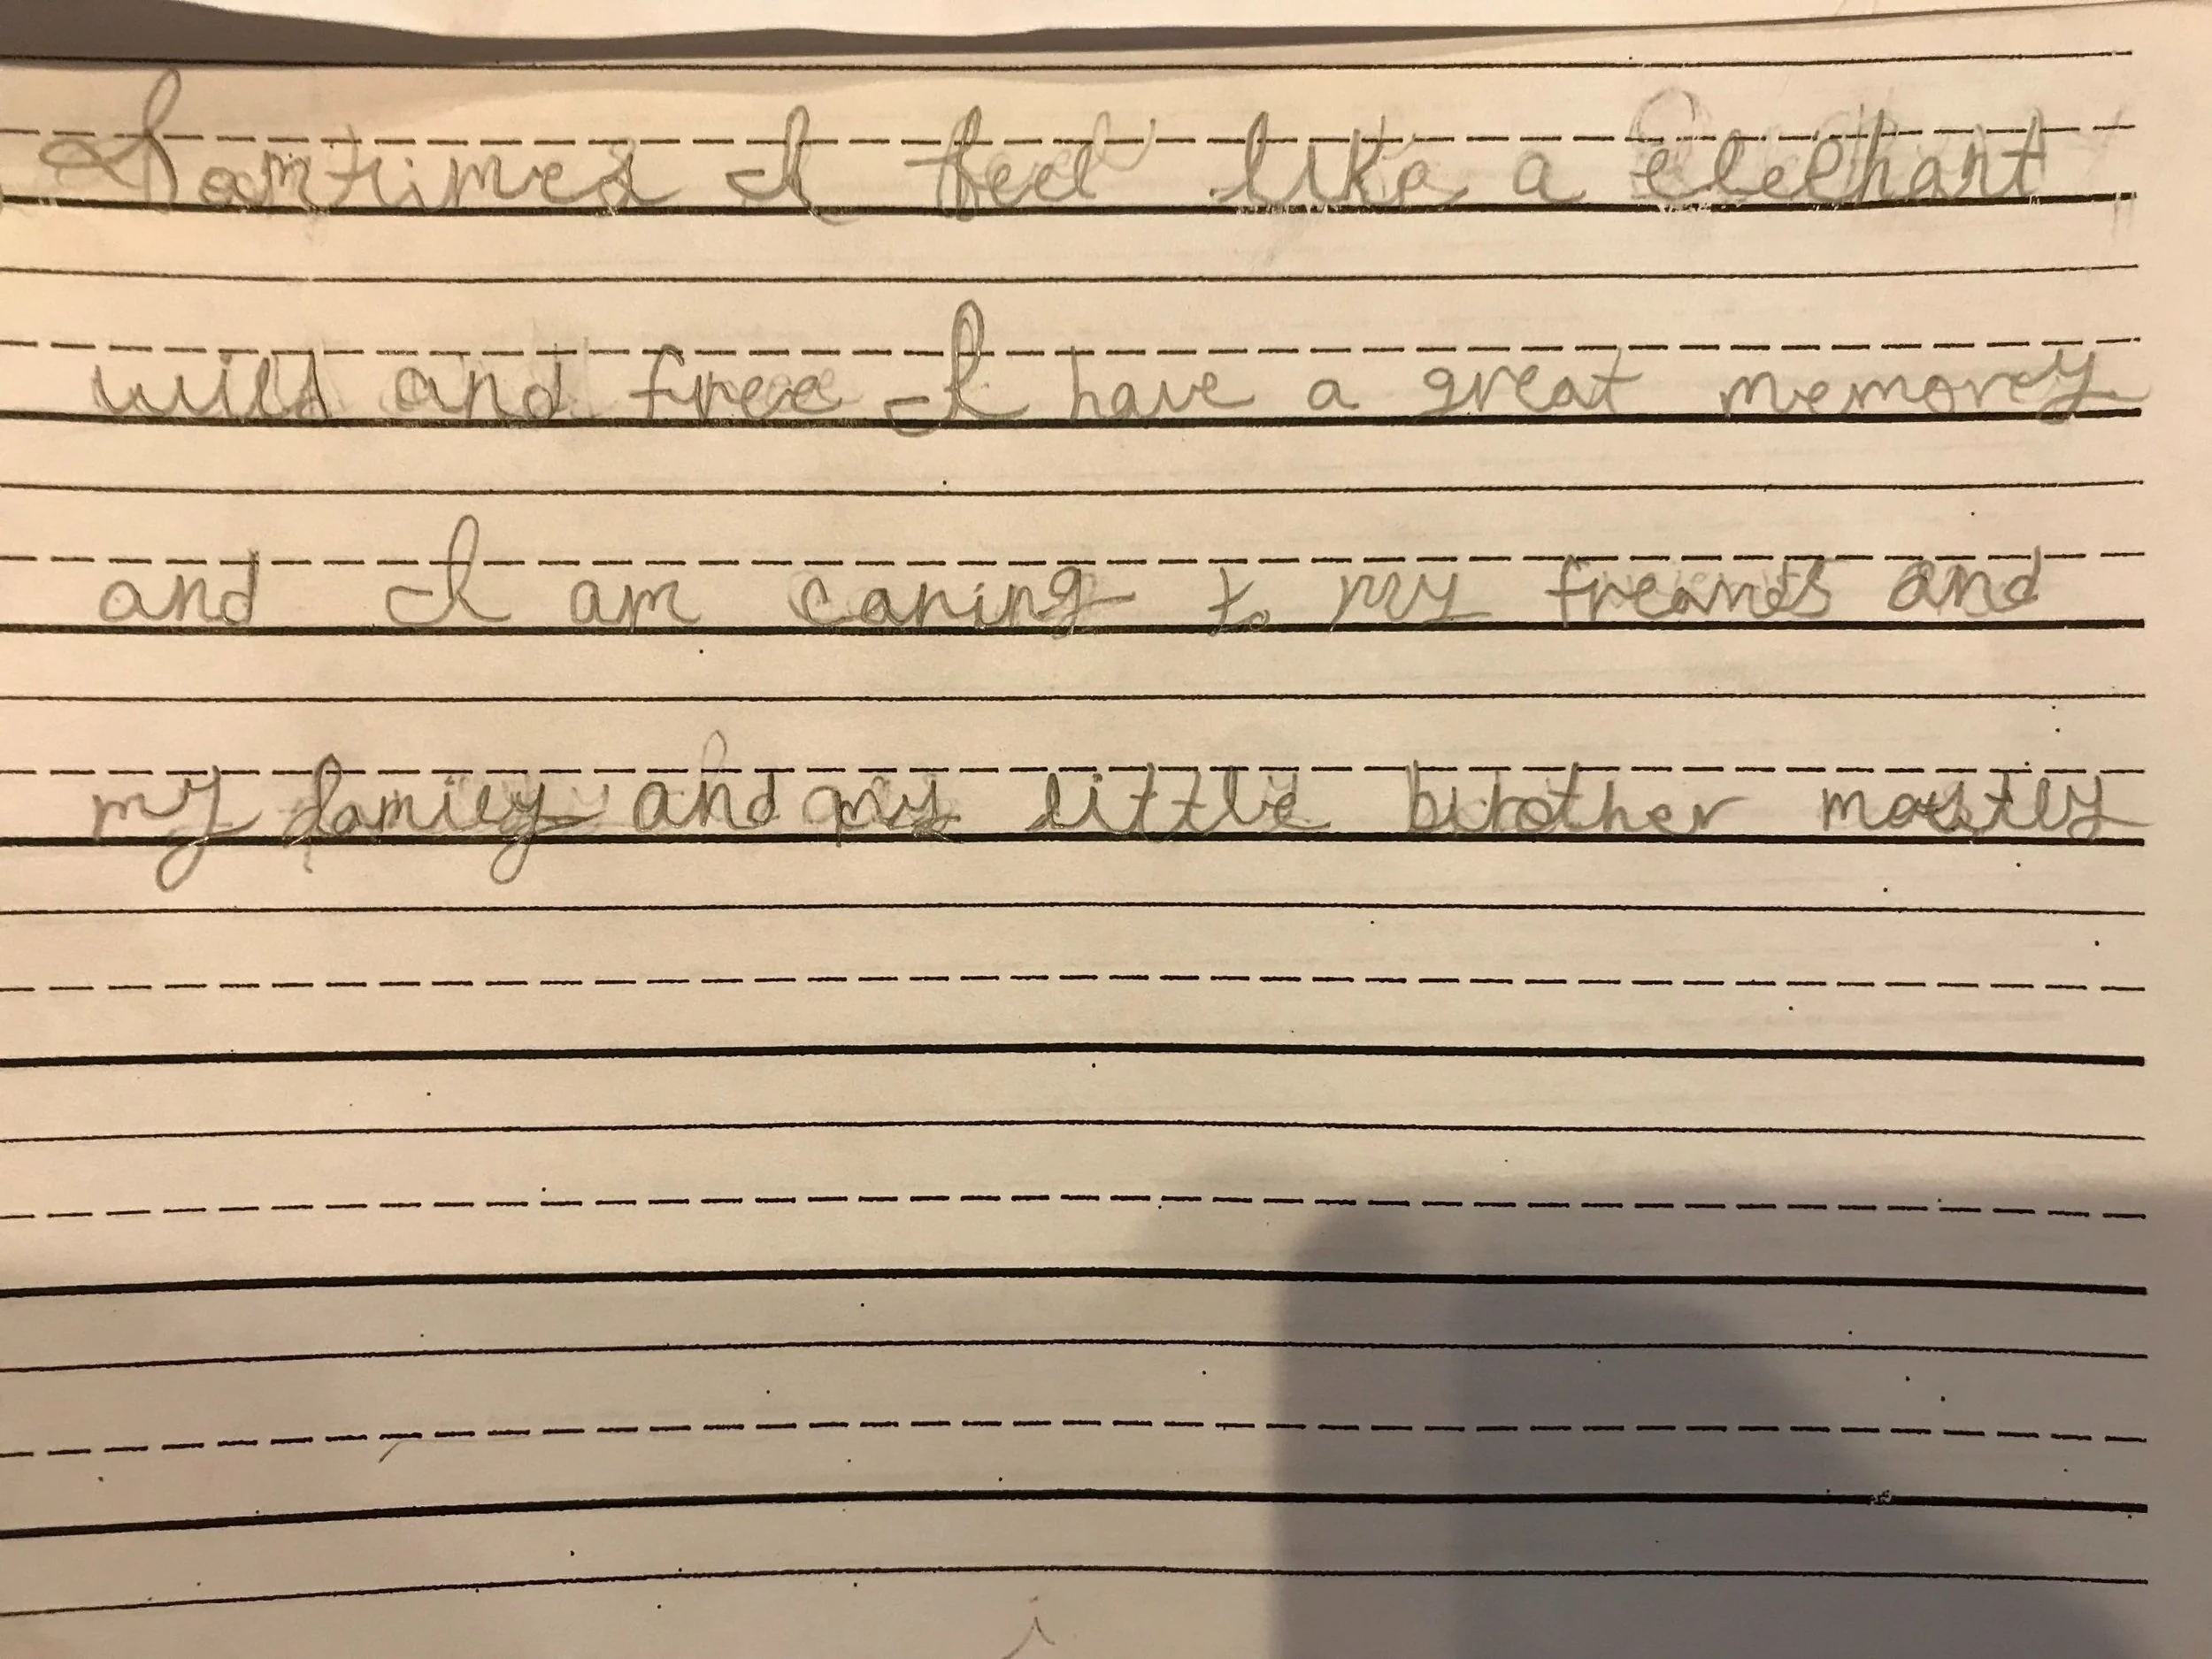 Somtimes I feel like a elephant
wild and free I have a great memorey
and I am caring to my freands and
my family and my little brother mostly
i